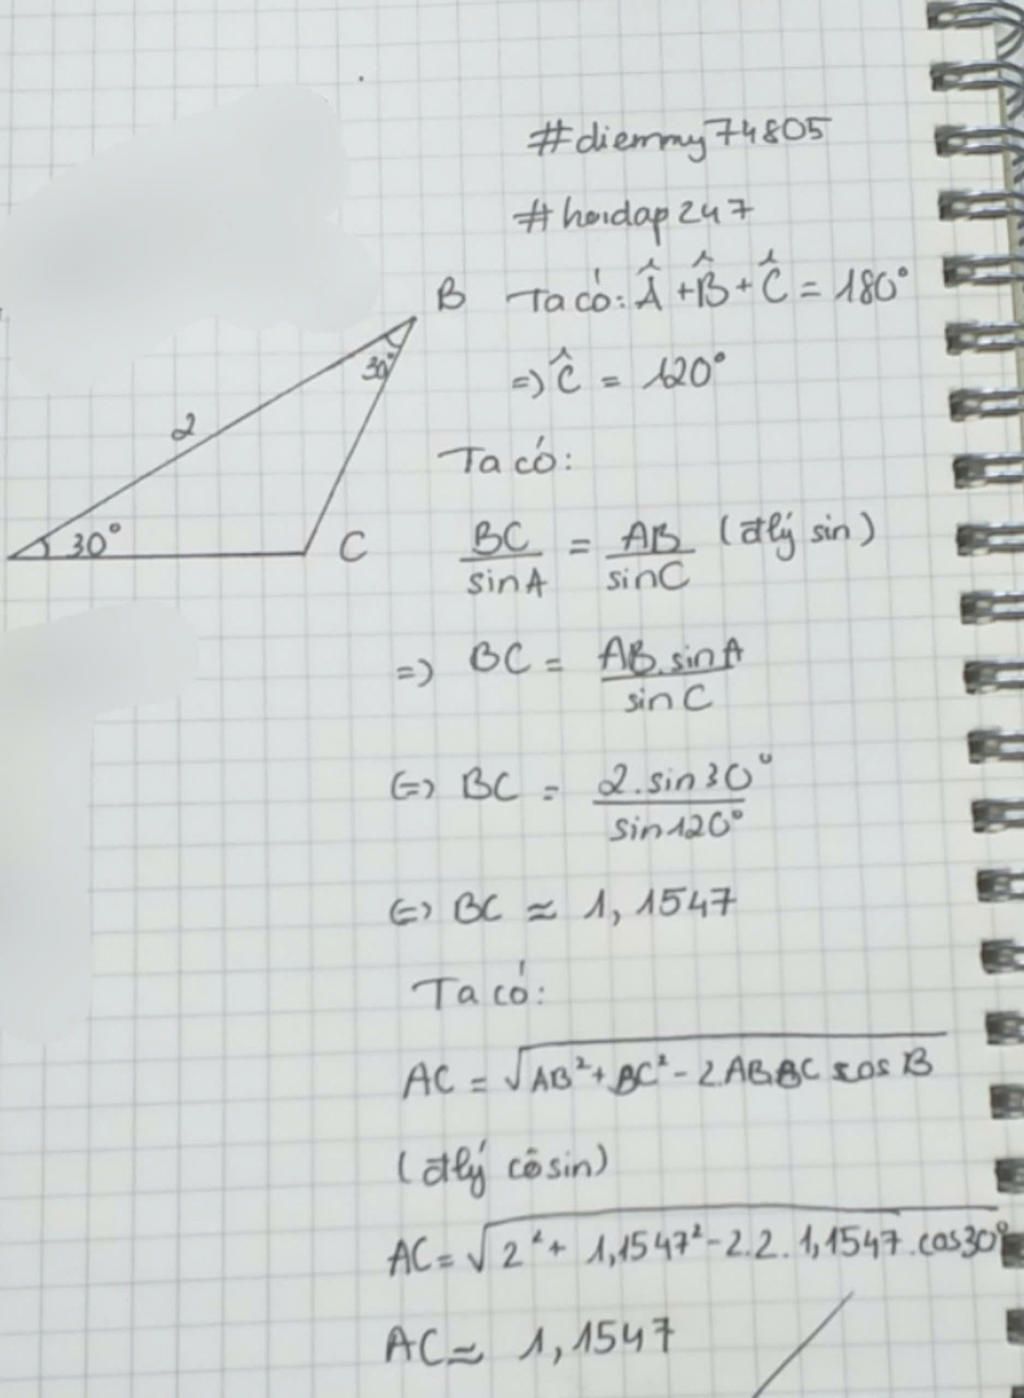 #diemmy74805
#hoidap247
B
Ta có: Â + B̂ + Ĉ = 180°
30°
=> Ĉ = 120°
2
Ta có:
30°
C
BC/sinA = AB/sinC (đlý sin)
=> BC = AB.sinA/sin C
<=> BC = 2.sin30°/sin120°
<=> BC ≈ 1,1547
Ta có:
AC = √AB² + BC² - 2.AB.BC cos B
(đlý côsin)
AC = √2² + 1,1547² - 2.2.1,1547.cos30°
AC ≈ 1,1547